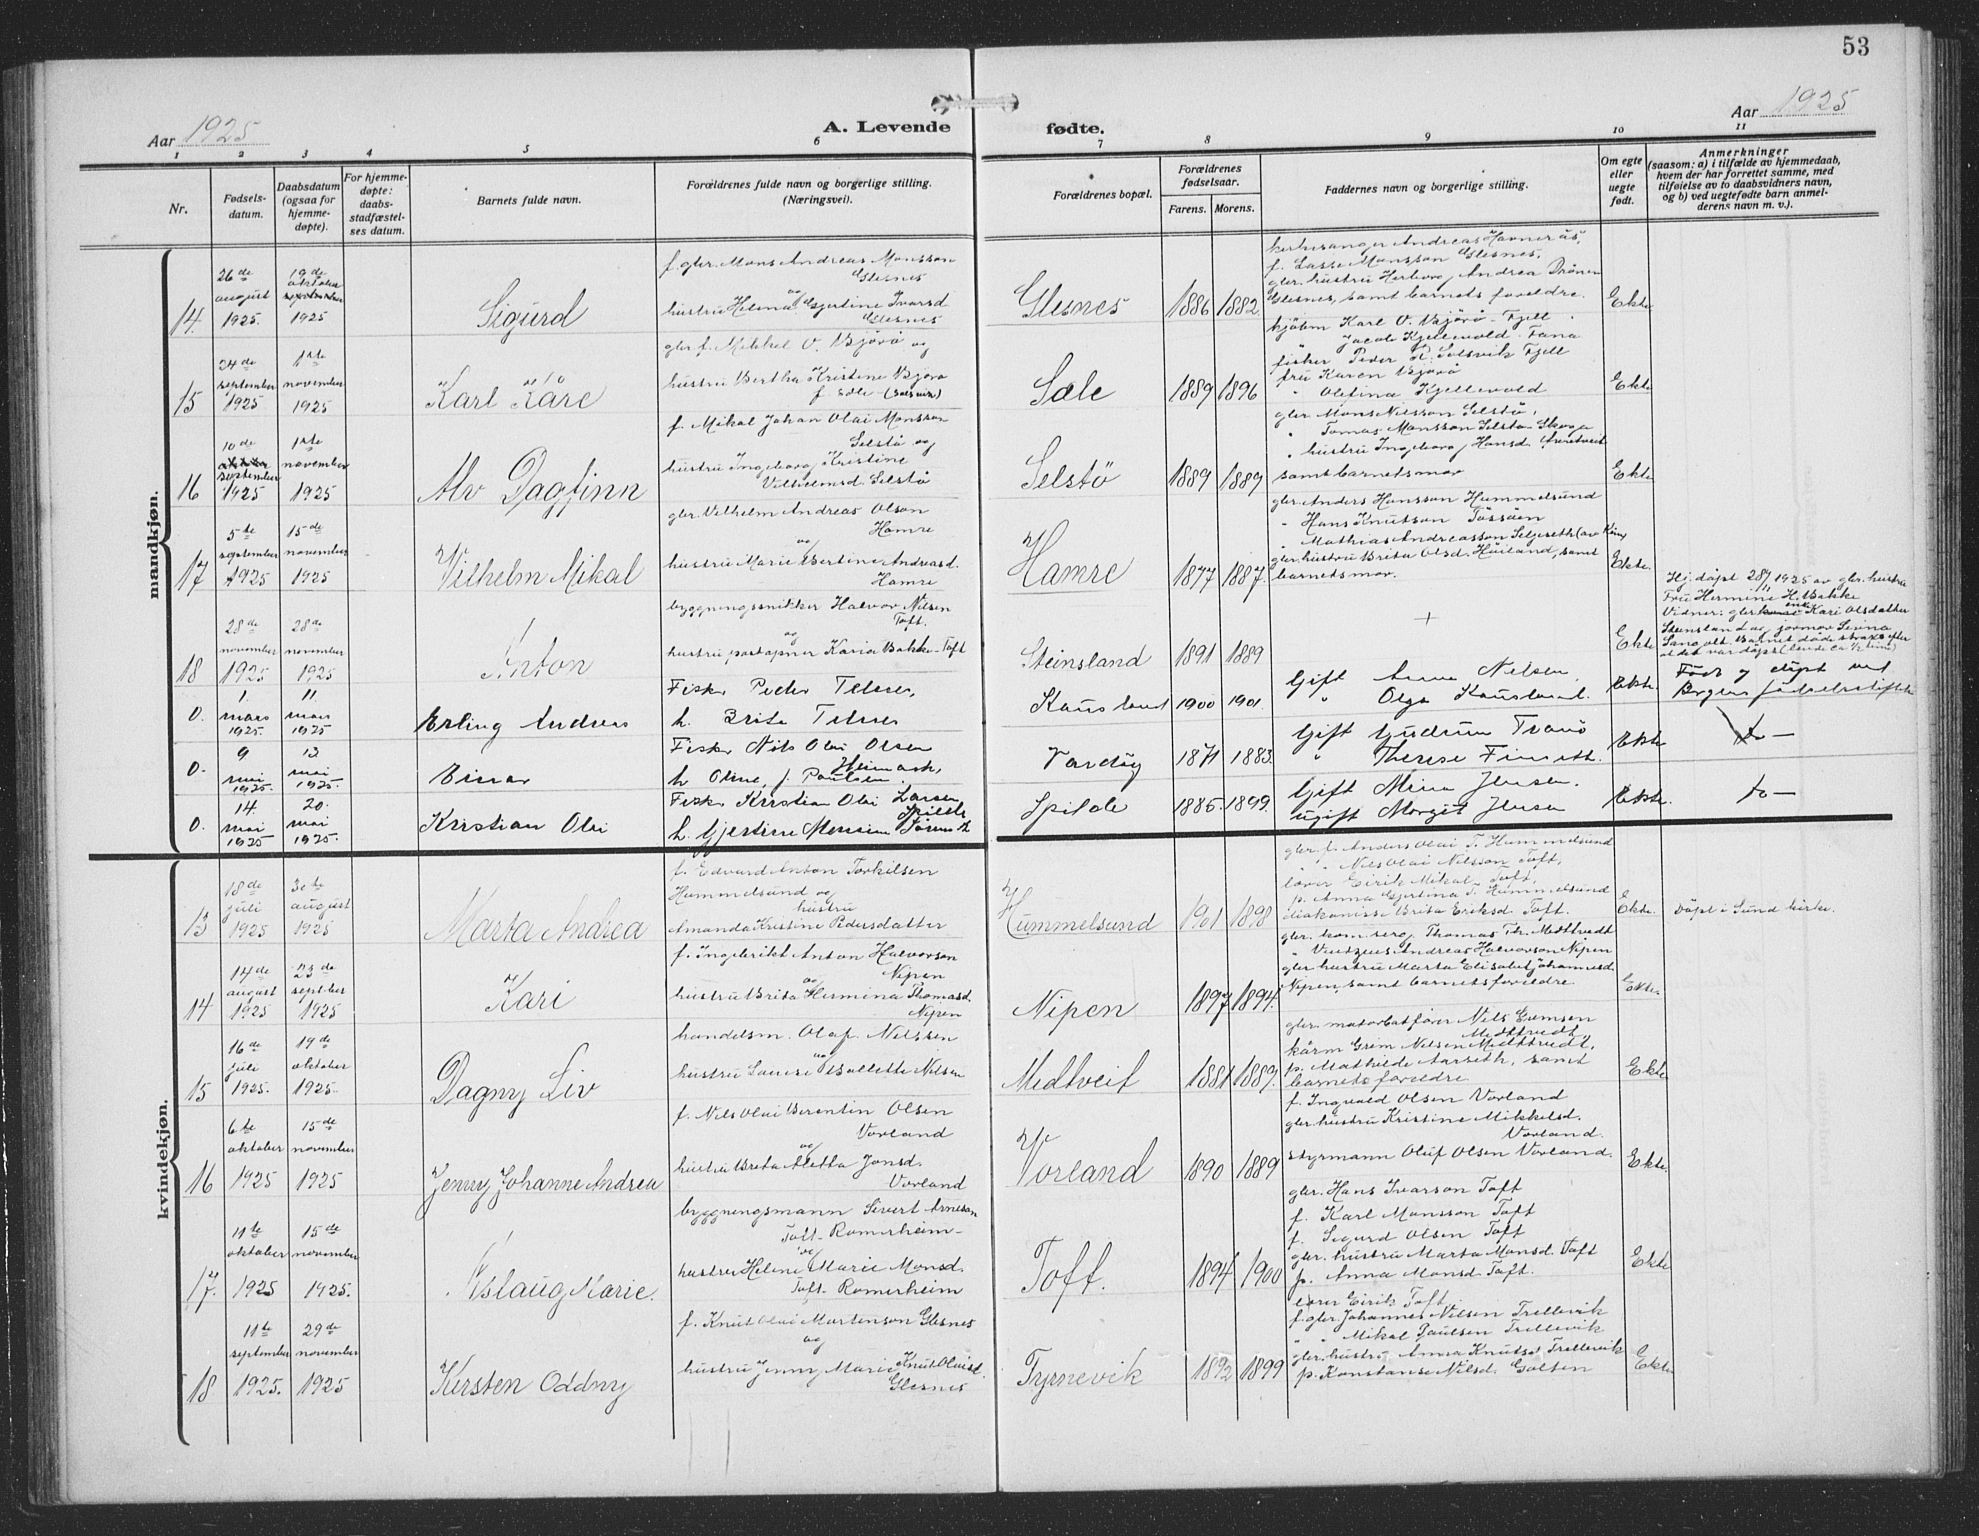 53
Aar 1925
A. Levende fødte.
Aar 1925
1 2 3 4 5 6 7 8 9 10 11
Nr.
Fødsels-
datum.
Daabsdatum
(ogsaa for
hjemme-
døpte).
For hjemme-
døpte:
daabs-
stadfæstel-
ses datum.
Barnets fulde navn.
Forældrenes fulde navn og borgerlige stilling.
(Næringsvei).
Forældrenes bopæl.
Forældrenes
fødselsaar.
Farens. Morens.
Faddernes navn og borgerlige stilling.
Om egte
eller
uegte
født.
Anmerkninger
(saasom: a) i tilfælde av hjemmedaab,
hvem der har forrettet samme, med
tilføielse av to daabsvidners navn,
og b) ved uegtefødte barn anmel-
derens navn m. v.).
mandkjøn.
14.
26de
august
1925.
19de
oktober
september
1925
Sigurd
f. gbr. Mons Andreas Monsson
Glesnes
og
hustru Helena Gjertine Ivarsd
Glesnes
Glesnes
1886
1882
kirkesanger Andreas Havnerås,
f. Lasse Monsson Glesnes,
gbr. hustru Herborg Andrea Drönen
Glesnes, samt barnets foreldre.
Ekte
15
24de
september
1925
1ste
november
1925
Karl Kåre
gbr. f. Mikkel O. Bjørø og
hustru Bertha Kristine Bjørø
f. Sæle (Solsvik)
Sæle
1889
1896
kjøbm Karl O. Bjørø - Fjell
" Jacob Kjellevold - Fana
fisker Peder P. Solsvik Fjell
fru Karen Bjørø
" Olefina Kjellevold
Ekte
16
10de
oktober
september
1925
1ste
november
1925
Alv Dagfinn
f. Mikal Johan Olai Monsson
Selstø og
hustru Ingeborg Kristine
Vilhelmsd Selstø
Selstø
1889
1889
gbr. Mons Nilsson Selstø,
" Tomas Monsson Selstø - Skoge
" hustru Ingeborg Hansd.
samt barnets mor
Ekte
17
5te
september
1925
15de
november
1925
Vilhelm Mikal
gbr. Vilhelm Andreas Olson
Hamre
og
hustru Marie Bertine Andreasd.
Hamre
Hamre
1877
1887.
gbr. Anders Hansson Hummelsund
" Hans Knutson Tössöen
" Mathias Andreasson Seljeseth
gbr. hustru Brita Olsd. Höiland, samt
barnets mor.
Ekte.
18
28de
november
1925
28de
november
1925
Anton
byggningssnikker Halvor Nilsen
Toft.
og
hustru postopner Karia Bakke - Toft
Steinsland
1891
1889
+
Ekte
Hj. döpt 28/11 1925 av gbr. hustru
Fru Hermine H. Bakke
Vidner: gbr. enke Kari Olsdatter
Steinsland og jormor Sevina
Sangolt. Barnet døde straks efter
at det var døpt (levde ca 1/2 time)
0.
1.
mars
1925.
11
mars
1925
Erling Andreas
Fisk. Peder Telnes,
h. Brita Telnes
Kausland
1900
1901
Gift Anna Nilsen,
" Olga Kausland.
Ekte.
Født og døpt ved
Bergens fødselsstiftelse
0.
9
mai
1925.
13
mai
1925.
Einar
Fisk. Nils Olai Olsen
Heimark,
h. Oline, f. Paulsen.
Vardöy
1871
1883.
Gift Gudrun Tranö
" Therese
Ekte
do —
0.
14.
mai
1925
20.
mai
1925.
Kristian Olai
Fisk. Kristian Olai Larsen
Spilde
h. Gjertine
Spilde
1885.
1899.
Gift Mina Jensen.
Ugift Margit Jensen
Ekte.
do —
kvindekjøn.
13
18de
juli
1925
30te
august
1925
Marta Andrea
f. Edvard Anton Torkilsen
Hummelsund og
hustru
Amanda Kristine Pedersdatter
Hummelsund
1901
1898
gbr. f. Anders Olai T. Hummelsund
" " Nils Olai Nilsson Toft,
lærer Eirik Mikal Toft,
p. Anna Gjertina T. Hummelsund
diakonisse Brita Eriksd. Toft.
Ekte.
Döpt i Sund kirke.
14
14de
august
1925
23de
septber
1925
Kari
f. Ingebrikt Anton Halvorson
Nipen
og
hustru Brita Hermina Thomasd.
Nipen
Nipen
1897
1894.
gbr. Thomas Th. Midttvedt
" Andreas Halvorson Nipen
gbr hustru Marta Elisabet Johannesd.
Nipen, samt barnets foreldre.
Ekte.
15
16de
juli
1925.
19de
oktober
1925.
Dagny Liv
handelsm. Olaf Nilssen
og
hustru Lovise Bollette Nilsen
Midtveit
1881
1889.
gbr. motorbåtförer Nils Grimsen
Midttvedt,
Grim Nilsen Midttvedt,
p. Mathilde Aarseth, samt
barnets foreldre.
Ekte
16
6te
oktober
1925
15de
november
1925
Jenny Johanne Andrea
f. Nils Olai Berentin Olsen
Vorland
og
hustru Brita Aletta Jonsd.
Vorland
Vorland
1890
1889
f. Ingvald Olsen Vorland
gbr. hustru Kristine Mikkelsd.
Vorland.
styrmann Oluf Olsen Vorland.
Ekte.
17.
11te
oktober
1925
15de
november
1925.
Aslaug Marie.
byggningsmann Sivert Arneson
Toft - Romerheim -
og
hustru Helene Marie Monsd.
Toft - Romerheim
Toft.
1894
1900
gbr. Hans Ivarson Toft
f. Karl Monsson Toft
f. Sigurd Olsen Toft
gbr. hustru Marta Monsd. Toft
p. Anna Monsd. Toft.
lærer Eirik Toft
Ekte
18
11te
september
1925.
29de
november
1925
Kirsten Oddny
f. Knut Olai Martenson Glesnes
og
hustru Jenny Marie Knut Olaisd.
Glesnes
Tyrnevik
1892
1899
f. gbr. Johannes Nilsen Trellevik
" " Mikal Paulsen Trellevik
gbr. hustru Anna Knutsd. Trellevik
p. Konstanse Nilsd. Golten
Ekte